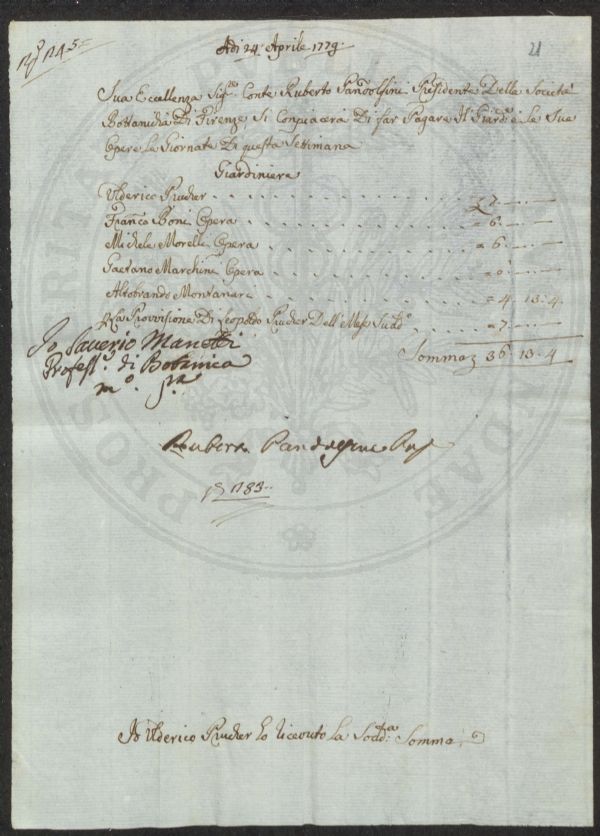 21
Adi 24 Aprile 1779
Sua Eccellenza Sig.re Conte Ruberto Pandolfini Presidente Della Società
Bottanicha Di Firenze, Si Conpiacerà Di far Pagare Il Giard.e e le Sue
Opere le Giornate Di questa Settimana
Giardiniera
Ulderico Prucker £ 7
Franco Boni Opera = 6
Michele Morelli Opera = 6
Gaetano Marchini Opera = 6
Altobrando Montanari = 4. 13. 4
Provvisione Di Leopoldo Prucker Dell' = 7
Io Saverio Manetti
Profess.e di Botanica
m.o p.a
Somma £ 36. 13. 4
Rubera Pandolfini
1783
Io Ulderico Prucker ho riceuto la Sodd.ta Somma
PROSPERITATI